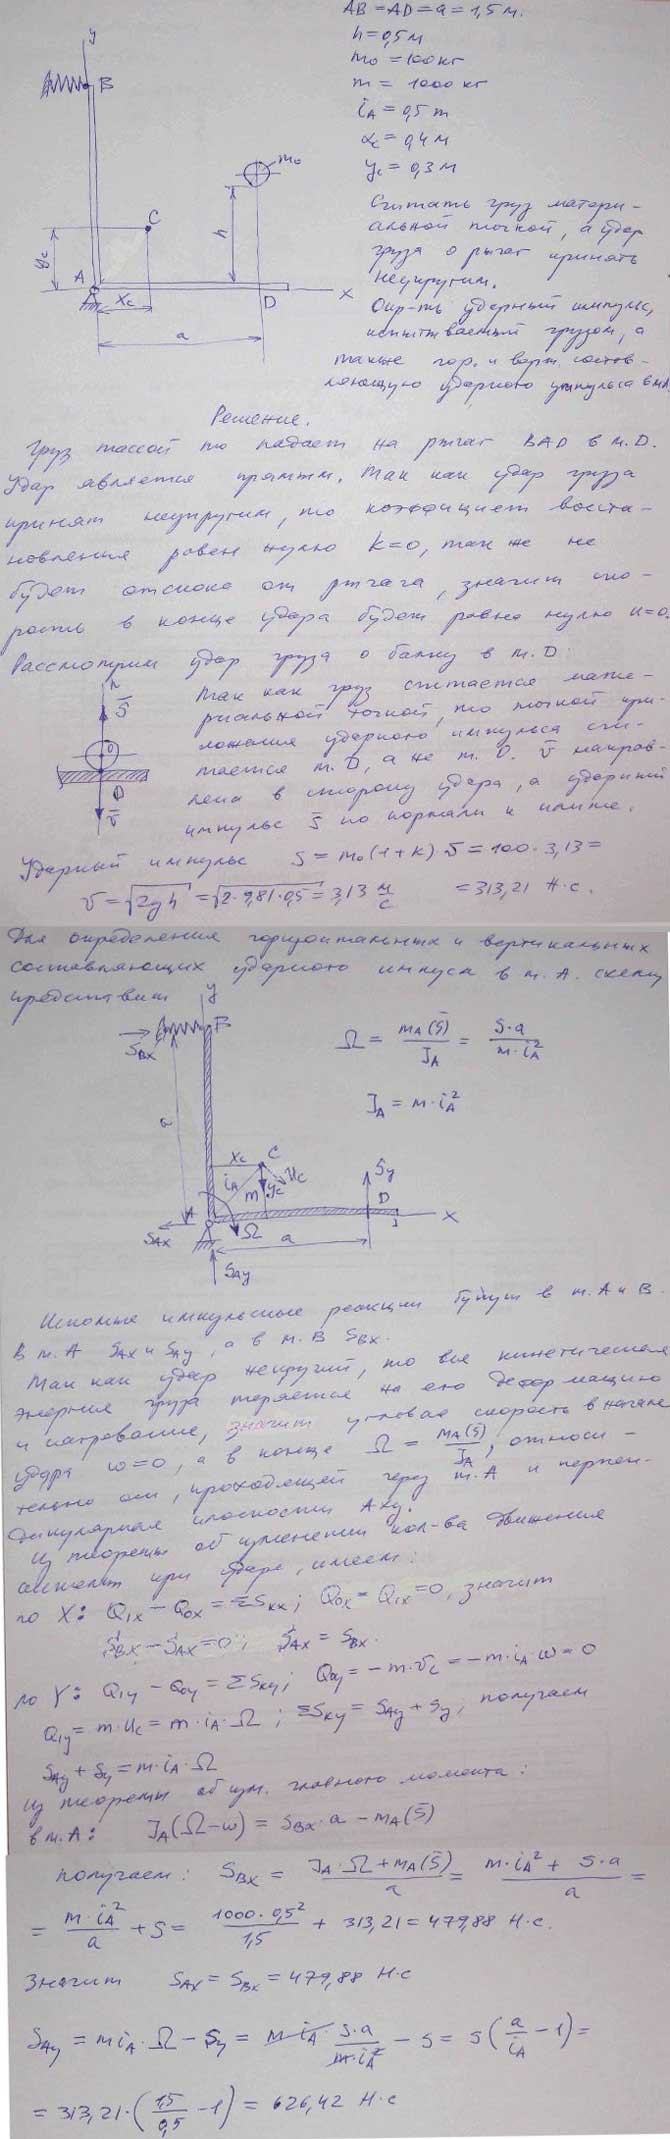 AB = AD = a = 1,5 м.
h = 0,5 м
m₀ = 100 кг
m = 1000 кг
i_A = 0,5 m
x_c = 0,4 м
y_c = 0,3 м
y
B
m₀
C
h
y_c
A
x_c
D
x
a
Считать груз матери-
альной точкой, а удар
груза о рычаг принять
неупругим.
Опр-ть ударный импульс,
испытываемый грузом, а
также гор. и верт. состав-
ляющую ударного импульса в т.A
Решение.
Груз массой m₀ падает на рычаг BAD в т. D.
Удар является прямым. Так как удар груза
принят неупругим, то коэффициент восста-
новления равен нулю K=0, так же не
будет отскока от рычага, значит ско-
рость в конце удара будет равна нулю u=0.
Рассмотрим удар груза о балку в т. D:
n
S̄
O
D
v̄
Так как груз считается мате-
риальной точкой, то точкой при-
ложения ударного импульса счи-
тается т. D, а не т. O. v̄ направ-
лена в сторону удара, а ударный
импульс S̄ по нормали к плите.
Ударный импульс S = m₀(1+K)·v = 100·3,13 =
v = √2gh = √2·9,81·0,5 = 3,13 м/с = 313,21 Н·с.
Для определения горизонтальных и вертикальных
составляющих ударного импуса в т. A. схему
представит
y
B
S_Bx
a
x_c
C
i_A
m
y_c
u_c
S_y
D
A
x
S_Ax
Ω
a
S_Ay
Ω = m_A(S̄)/J_A = S·a/m·i_A²
J_A = m·i_A²
Искомые импульсные реакции будут в т. A и B.
В т. A S_Ax и S_Ay, а в т. B S_Bx.
Так как удар неупругий, то вся кинетическая
энергия груза теряется на его деформацию
и нагревание, значит угловая скорость в начале
удара ω=0, а в конце Ω = m_A(S̄)/J_A, относи-
тельно оси, проходящей через т. A и перпен-
дикулярная плоскости Axy.
Из теоремы об изменении кол-ва движения
системы при ударе, имеем:
по X: Q₁x − Q₀x = ΣS_kx; Q₀x = Q₁x = 0, значит
S_Bx − S_Ax = 0; S_Ax = S_Bx.
по Y: Q₁y − Q₀y = ΣS_ky; Q₀y = −m·v_c = −m·i_A·ω = 0
Q₁y = m·u_c = m·i_A·Ω; ΣS_ky = S_Ay + S_y; получаем
S_Ay + S_y = m·i_A·Ω
Из теоремы об изм. главного момента:
в т. A: J_A(Ω−ω) = S_Bx·a − m_A(S̄)
получаем: S_Bx = J_A·Ω + m_A(S̄)/a = m·i_A² + S·a/a =
= m·i_A²/a + S = 1000·0,5²/1,5 + 313,21 = 479,88 Н·с.
Значит S_Ax = S_Bx = 479,88 Н·с
S_Ay = m i_A·Ω − S_y = m·i_A·S·a/m·i_A² − S = S(a/i_A − 1) =
= 313,21·(1,5/0,5 − 1) = 626,42 Н·с